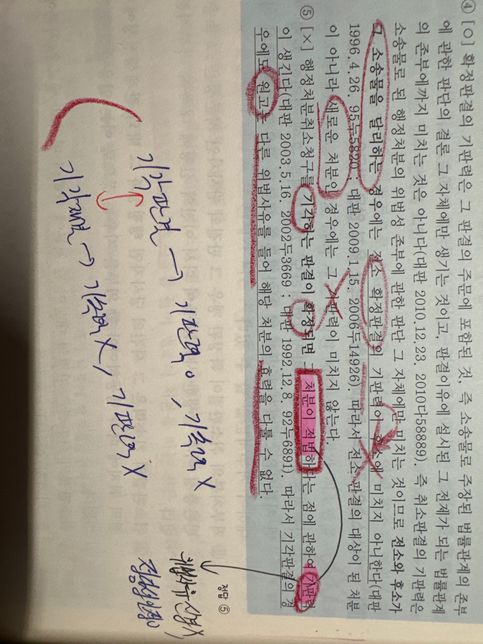 ④ [○] 확정판결의 기판력은 그 판결의 주문에 포함된 것, 즉 소송물로 주장된 법률관계의 존부
에 관한 판단의 결론 그 자체에만 생기는 것이고, 판결이유에 설시된 그 전제가 되는 법률관계
의 존부에까지 미치는 것은 아니다(대판 2010.12.23. 2010다58889). 즉 취소판결의 기판력은
소송물로 된 행정처분의 위법성 존부에 관한 판단 그 자체에만 미치는 것이므로 전소와 후소가
그 소송물을 달리하는 경우에는 전소 확정판결의 기판력이 후소에 미치지 아니한다(대판
1996.4.26. 95누5820, 대판 2009.1.15. 2006두14926). 따라서 전소 판결의 대상이 된 처분
이 아니라 새로운 처분인 경우에는 그 기판력이 미치지 않는다.
⑤ [×] 행정처분취소청구를 기각하는 판결이 확정되면 그 처분이 적법하다는 점에 관하여 기판력
이 생긴다(대판 2003.5.16. 2002두3669 ; 대판 1992.12.8. 92누6891). 따라서 기각판결의 경
우에도 원고는 다른 위법사유를 들어 해당 처분의 효력을 다툴 수 없다.
정답 ⑤
기각판결 → 기판력 O, 기속력 X
기각재결 → 기속력 X, 기판력 X